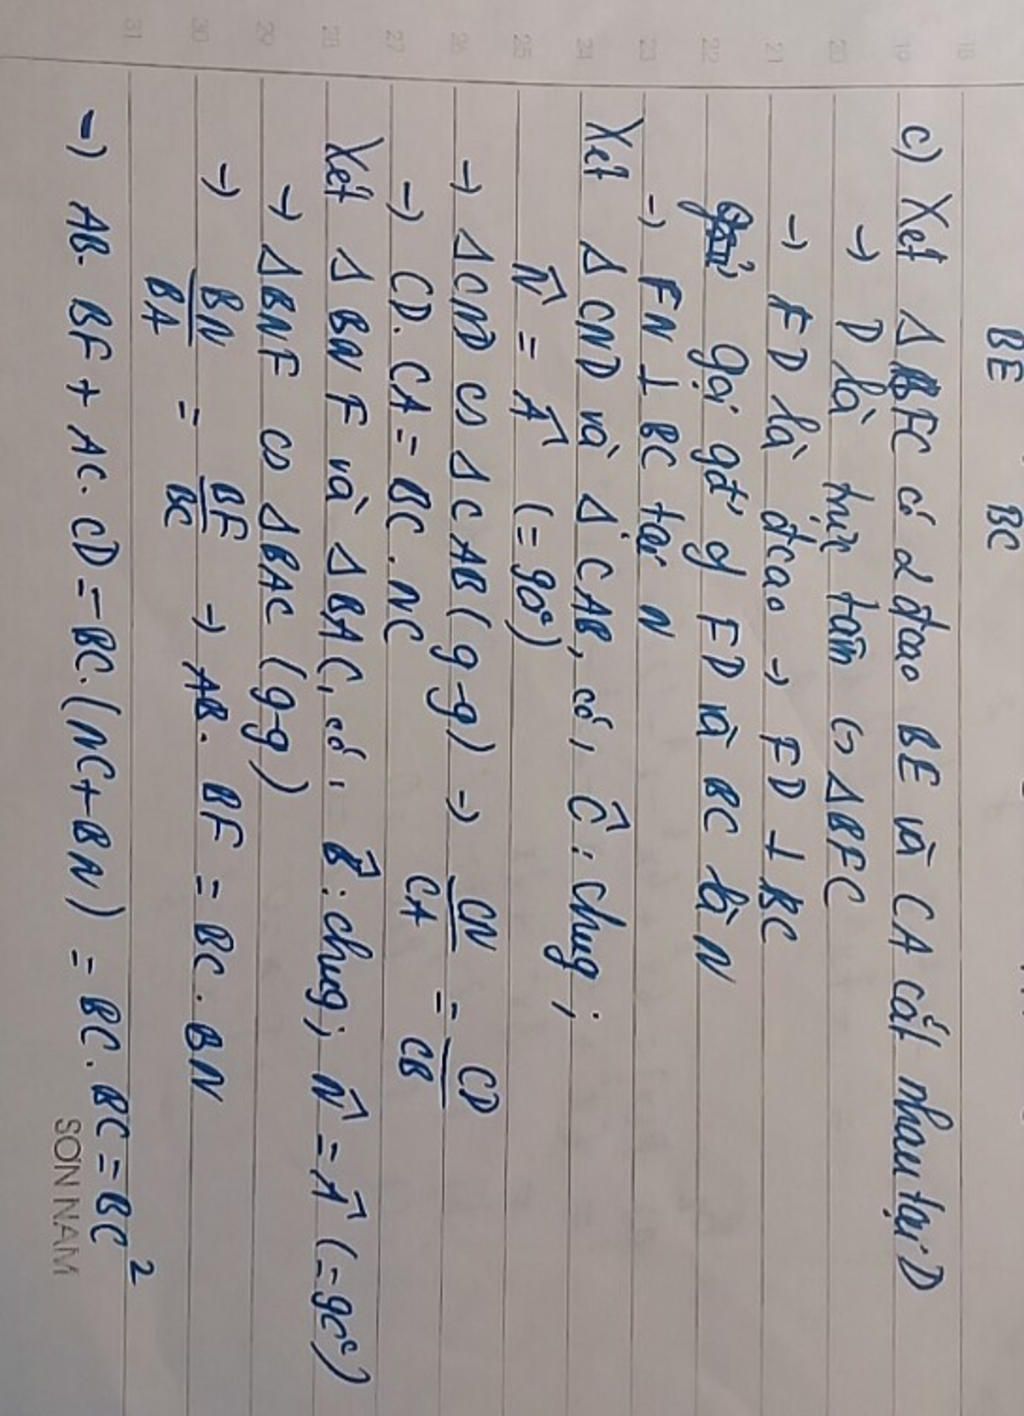 BE BC
c) Xét Δ BFC có 2 đcao BE và CA cắt nhau tại D
→ D là trực tâm củ ΔBFC
→ FD là đcao → FD ⊥ BC
Gọi gđ' of FD và BC là N
→ FN ⊥ BC tại N
Xét Δ CND và Δ CAB, có, Ĉ: chug;
N̂ = Â (= 90°)
→ ΔCND ∽ ΔCAB (g-g) → CN/CA = CD/CB
→ CD. CA = BC. NC
Xét Δ BNF và ΔBAC, có: B̂: chug; N̂ = Â (=90°)
→ ΔBNF ∽ ΔBAC (g-g)
→ BN/BA = BF/BC → AB. BF = BC. BN
→ AB. BF + AC. CD = BC.(NC+BN) = BC. BC = BC²
18
19
20
21
22
23
24
25
26
27
28
29
30
31
SON NAM